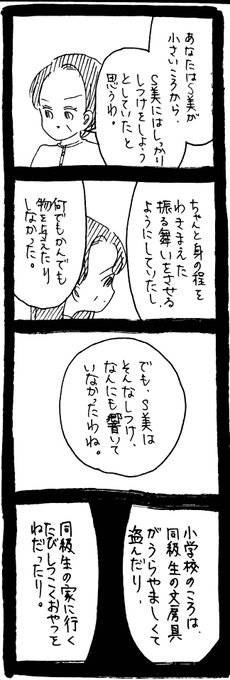 あなたはS美が
小さいころから、
S美にはしっかり
しつけをしよう
としていたと
思うわ。
ちゃんと身の程を
わきまえた
振る舞いをさせる
ようにしていたし
何でもかんでも
物を与えたり
しなかった。
でも、S美は
そんなしつけ、
なんにも響いて
いなかったわね。
小学校のころは、
同級生の文房具
がうらやましくて
盗んだり、
同級生の家に行く
たびしつこくおやつを
ねだったり。